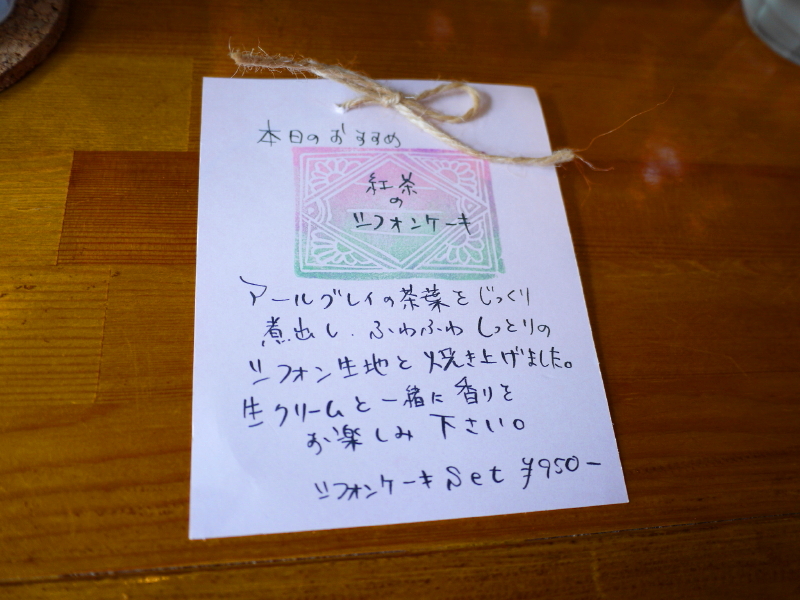 本日のおすすめ
紅茶
の
シフォンケーキ
アールグレイの茶葉をじっくり
煮出し、ふわふわしっとりの
シフォン生地と焼き上げました。
生クリームと一緒に香りを
お楽しみ下さい。
シフォンケーキ Set ¥950−